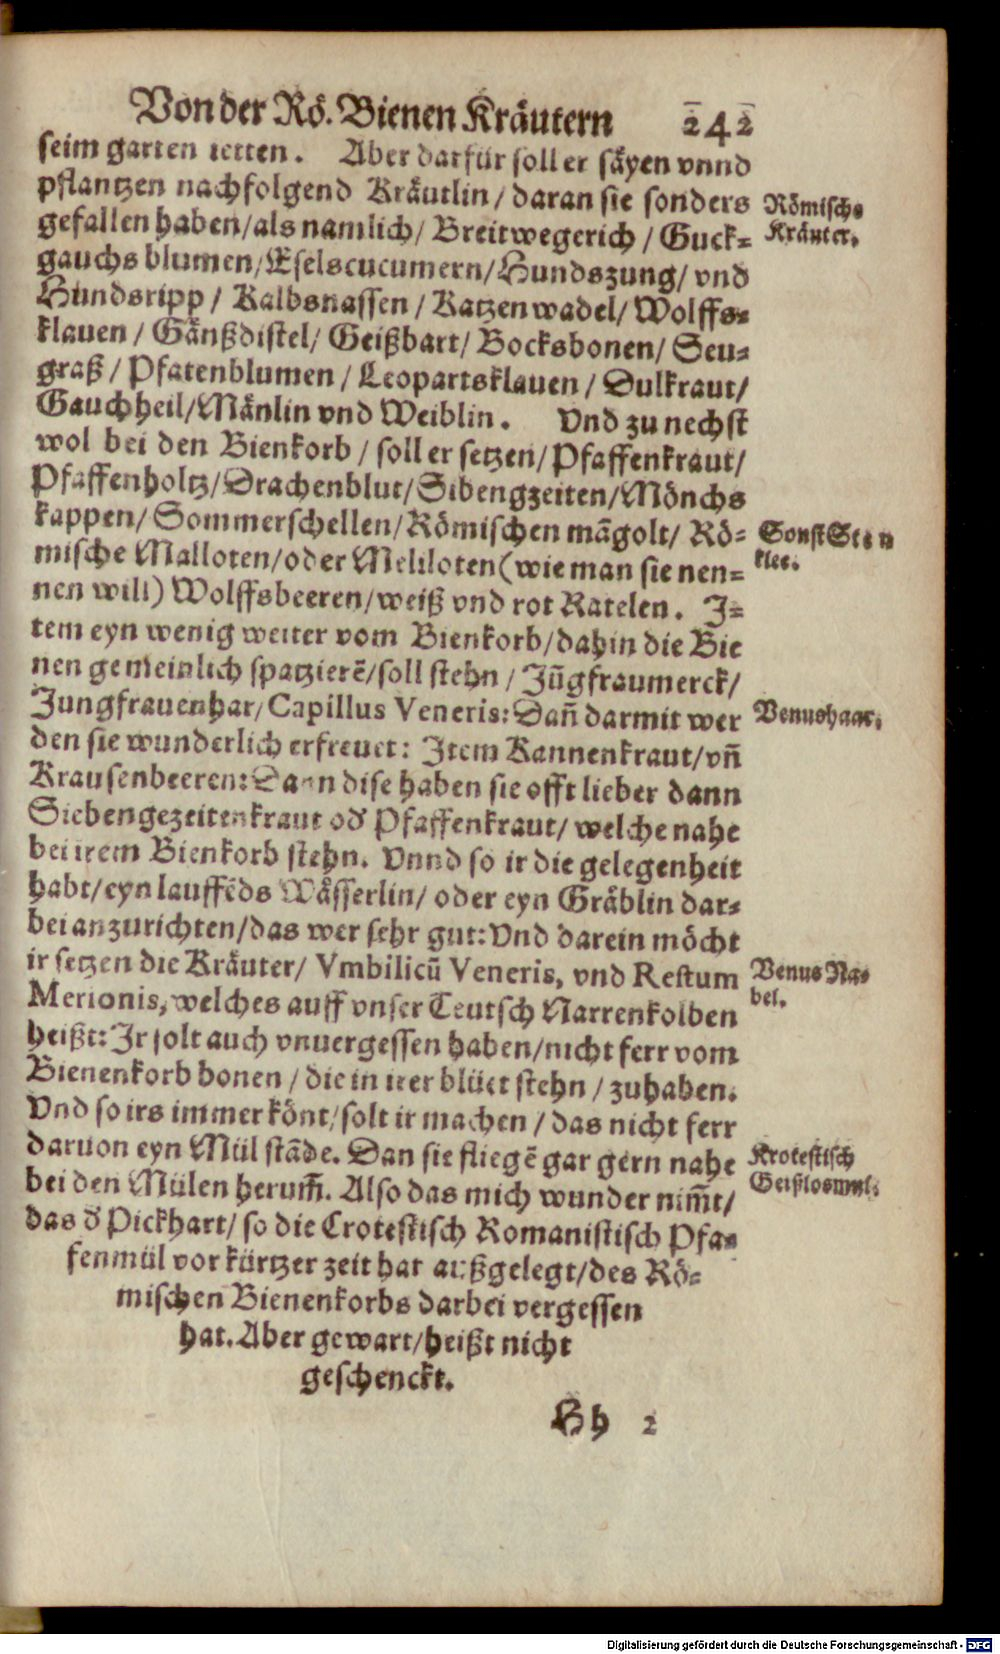 Von der Rö. Bienen Kräutern 242
seim garten ietten. Aber darfür soll er säyen vnnd
pflantzen nachfolgend Kräutlin / daran sie sonders
Römische
gefallen haben / als namlich / Breitwegerich / Guck⸗
Kräuter.
gauchs blumen / Eselscucumern / Hundszung / vnd
Hundsripp / Kalbsnassen / Katzen wadel / Wolffs⸗
klauen / Gänßdistel / Geißbart / Bocksbonen / Seu⸗
graß / Pfatenblumen / Leopartsklauen / Dulkraut /
Gauchheil / Mänlin vnd Weiblin. Vnd zu nechst
wol bei den Bienkorb / soll er setzen / Pfaffenkraut /
Pfaffenholtz / Drachenblut / Sibengzeiten / Mönchs
kappen / Sommerschellen / Römischen mãgolt / Rö⸗
Sonst Stein
mische Malloten / oder Meliloten (wie man sie nen⸗
klee.
nen will) Wolffsbeeren / weiß vnd rot Ratelen. J⸗
tem eyn wenig weiter vom Bienkorb / dahin die Bie
nen gemeinlich spatzierẽ / soll stehn / Jũgfraumerck /
Jungfrauenhar / Capillus Veneris: Dañ darmit wer
Venushaar.
den sie wunderlich erfreuet: Jtem Kannenkraut / vñ
Krausenbeeren: Dann dise haben sie offt lieber dann
Siebengezeitenkraut oď Pfaffenkraut / welche nahe
bei irem Bienkorb stehn. Vnnd so ir die gelegenheit
habt / eyn lauffẽds Wässerlin / oder eyn Gräblin dar⸗
bei anzurichten / das wer sehr gut: Vnd darein möcht
ir setzen die Kräuter / Vmbilicũ Veneris, vnd Restum
Venus Na⸗
Merionis, welches auff vnser Teutsch Narrenkolben
bel.
heißt: Jr solt auch vnuergessen haben / nicht ferr vom
Bienenkorb bonen / die in irer blüet stehn / zuhaben.
Vnd so irs immer könt / solt ir machen / das nicht ferr
daruon eyn Mül stãde. Dan sie fliegẽ gar gern nahe
Krotestisch
bei den Mülen herum̃. Also das mich wunder nim̃t /
Geistlosmul.
das ď Pickhart / so die Crotestisch Romanistisch Pfa⸗
fenmül vor kürtzer zeit hat außgelegt / des Rö⸗
mischen Bienenkorbs darbei vergessen
hat. Aber gewart / heißt nicht
geschenckt.
Hh 2
Digitalisierung gefördert durch die Deutsche Forschungsgemeinschaft - DFG